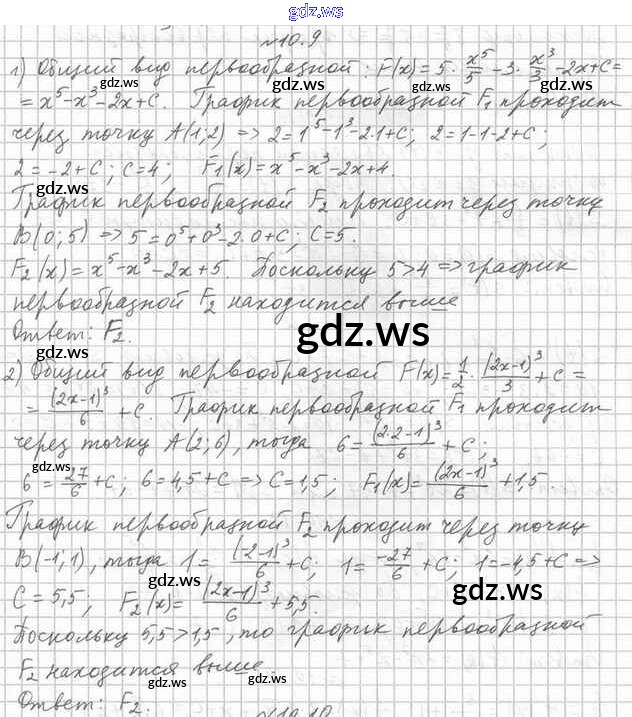 gdz.ws
№10.9
1) Общий вид первообразной: F(x) = 5·x⁵/5 - 3·x³/3 - 2x + C =
= x⁵ - x³ - 2x + C. График первообразной F₁ проходит
gdz.ws gdz.ws
через точку A(1;2) => 2 = 1⁵ - 1³ - 2·1 + C; 2 = 1 - 1 - 2 + C;
2 = -2 + C; C = 4; F₁(x) = x⁵ - x³ - 2x + 4.
gdz.ws gdz.ws
График первообразной F₂ проходит через точку
B(0;5) => 5 = 0⁵ + 0³ - 2·0 + C; C = 5.
F₂(x) = x⁵ - x³ - 2x + 5. Поскольку 5 > 4 => график
gdz.ws gdz.ws
первообразной F₂ находится выше
Ответ: F₂.
gdz.ws
gdz.ws
2) Общий вид первообразной F(x) = 1/2·(2x-1)³/3 + C =
= (2x-1)³/6 + C. График первообразной F₁ проходит
gdz.ws gdz.ws
через точку A(2;6), тогда 6 = (2·2-1)³/6 + C;
6 = 27/6 + C; 6 = 4,5 + C => C = 1,5; F₁(x) = (2x-1)³/6 + 1,5.
gdz.ws gdz.ws
График первообразной F₂ проходит через точку
B(-1;1), тогда 1 = (-2-1)³/6 + C; 1 = -27/6 + C; 1 = -4,5 + C =>
gdz.ws gdz.ws
C = 5,5; F₂(x) = (2x-1)³/6 + 5,5.
Поскольку 5,5 > 1,5, то график первообразной
F₂ находится выше.
gdz.ws gdz.ws
Ответ: F₂.
№10.10